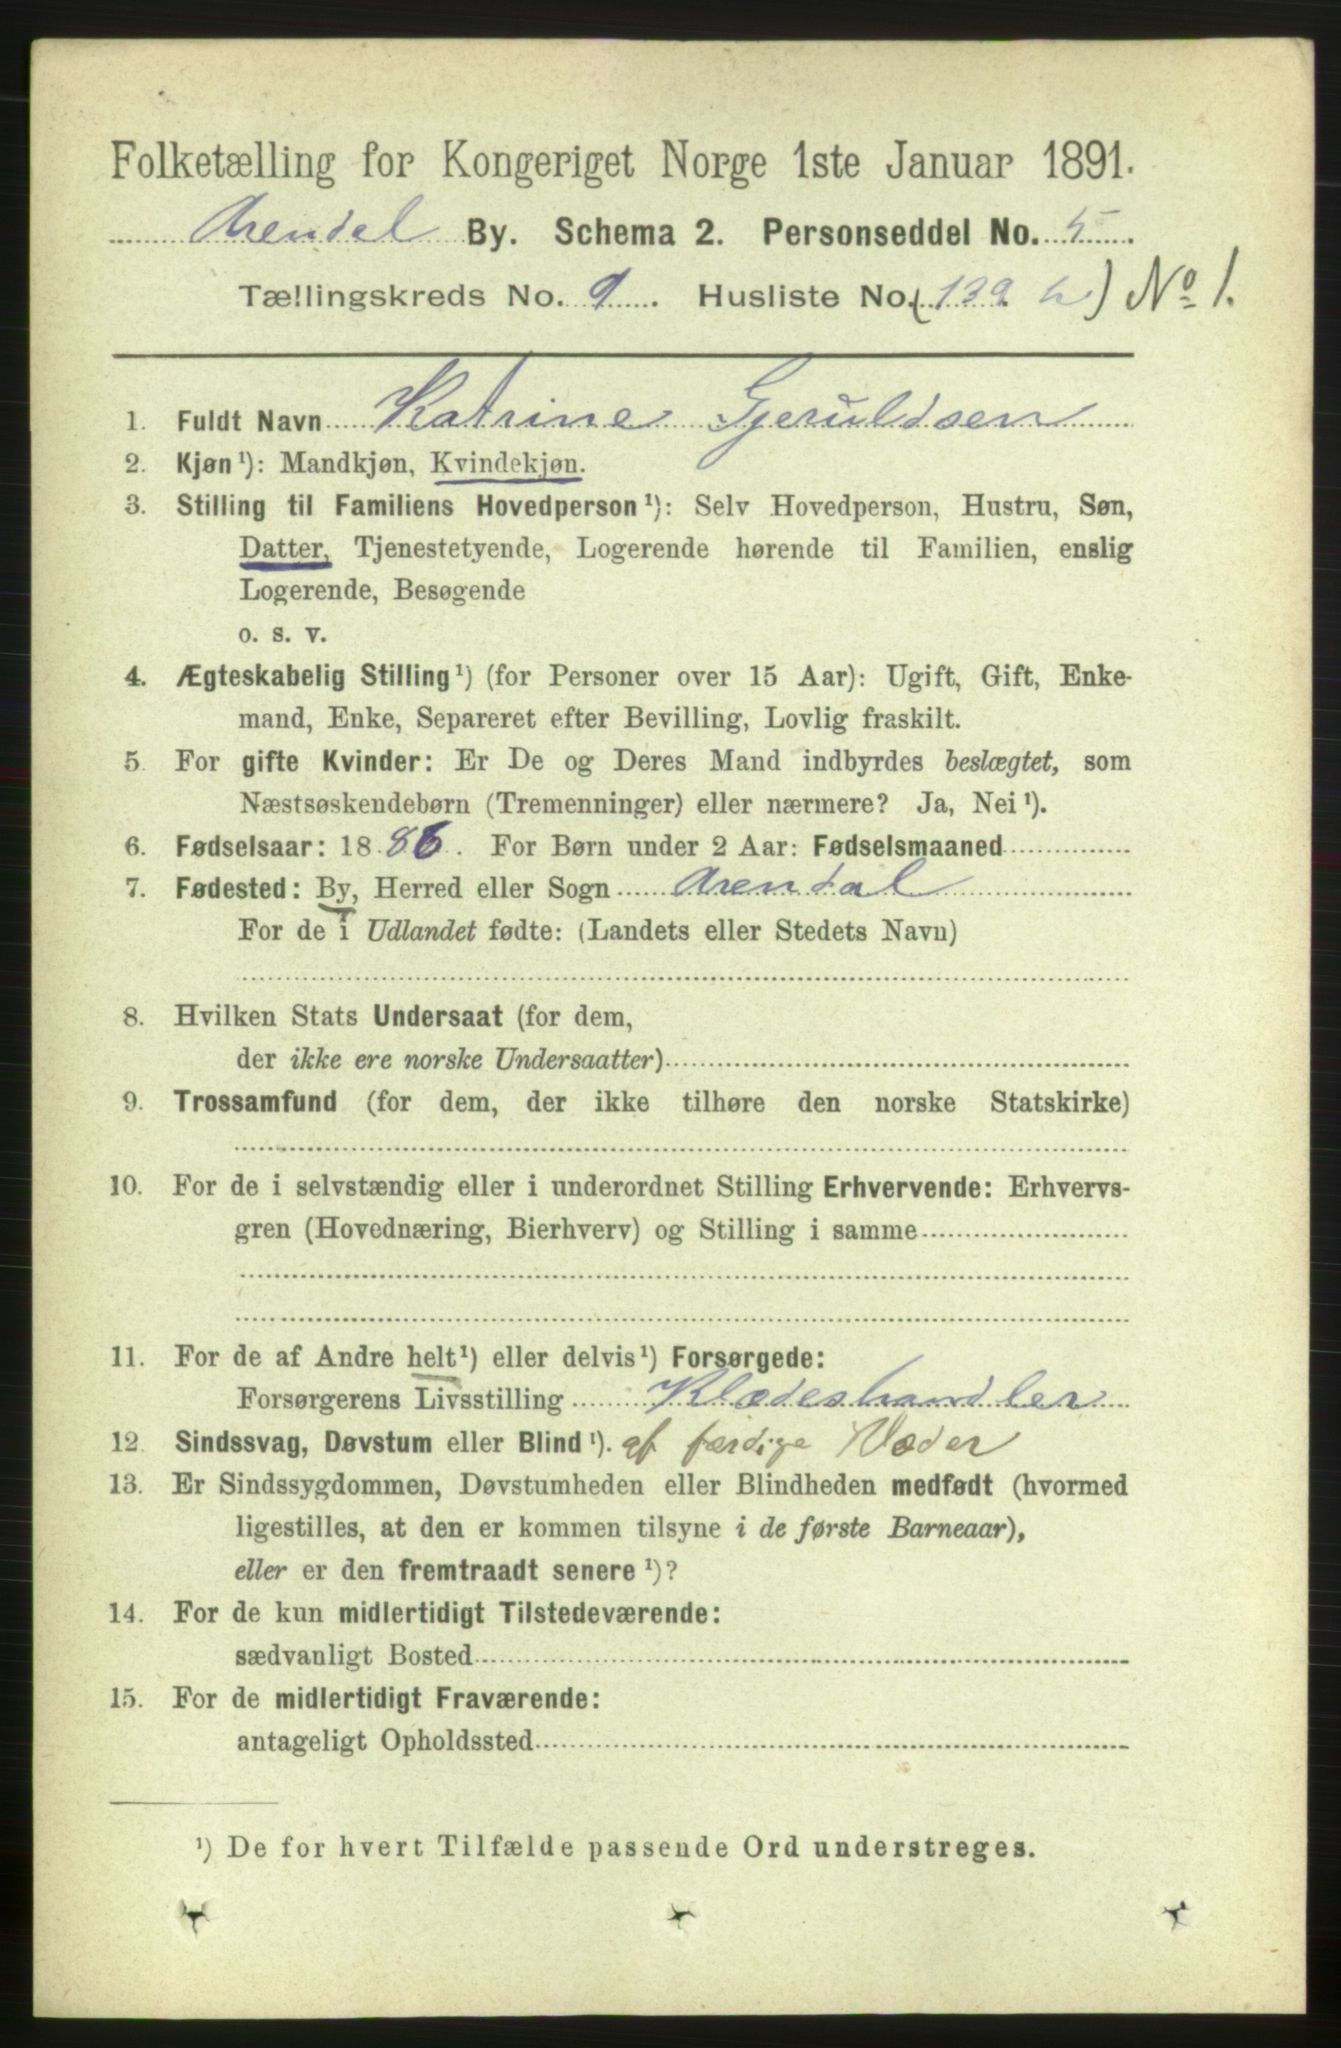 Folketælling for Kongeriget Norge 1ste Januar 1891.
Arendal By. Schema 2. Personseddel No. 5.
Tællingskreds No. 9. Husliste No. (139 h) No 1.
1. Fuldt Navn Katrine Gjeruldsen
2. Kjøn ¹): Mandkjøn, Kvindekjøn.
3. Stilling til Familiens Hovedperson ¹): Selv Hovedperson, Hustru, Søn,
Datter, Tjenestetyende, Logerende hørende til Familien, enslig
Logerende, Besøgende
o. s. v.
4. Ægteskabelig Stilling ¹) (for Personer over 15 Aar): Ugift, Gift, Enke-
mand, Enke, Separeret efter Bevilling, Lovlig fraskilt.
5. For gifte Kvinder: Er De og Deres Mand indbyrdes beslægtet, som
Næstsøskendebørn (Tremenninger) eller nærmere? Ja, Nei ¹).
6. Fødselsaar: 1886. For Børn under 2 Aar: Fødselsmaaned
7. Fødested: By, Herred eller Sogn Arendal
For de i Udlandet fødte: (Landets eller Stedets Navn)
8. Hvilken Stats Undersaat (for dem,
der ikke ere norske Undersaatter)
9. Trossamfund (for dem, der ikke tilhøre den norske Statskirke)
10. For de i selvstændig eller i underordnet Stilling Erhvervende: Erhvervs-
gren (Hovednæring, Bierhverv) og Stilling i samme
11. For de af Andre helt ¹) eller delvis ¹) Forsørgede:
Forsørgerens Livsstilling Klædeshandler
12. Sindssvag, Døvstum eller Blind ¹). af færdige Klæder
13. Er Sindssygdommen, Døvstumheden eller Blindheden medfødt (hvormed
ligestilles, at den er kommen tilsyne i de første Barneaar),
eller er den fremtraadt senere ¹)?
14. For de kun midlertidigt Tilstedeværende:
sædvanligt Bosted
15. For de midlertidigt Fraværende:
antageligt Opholdssted
¹) De for hvert Tilfælde passende Ord understreges.